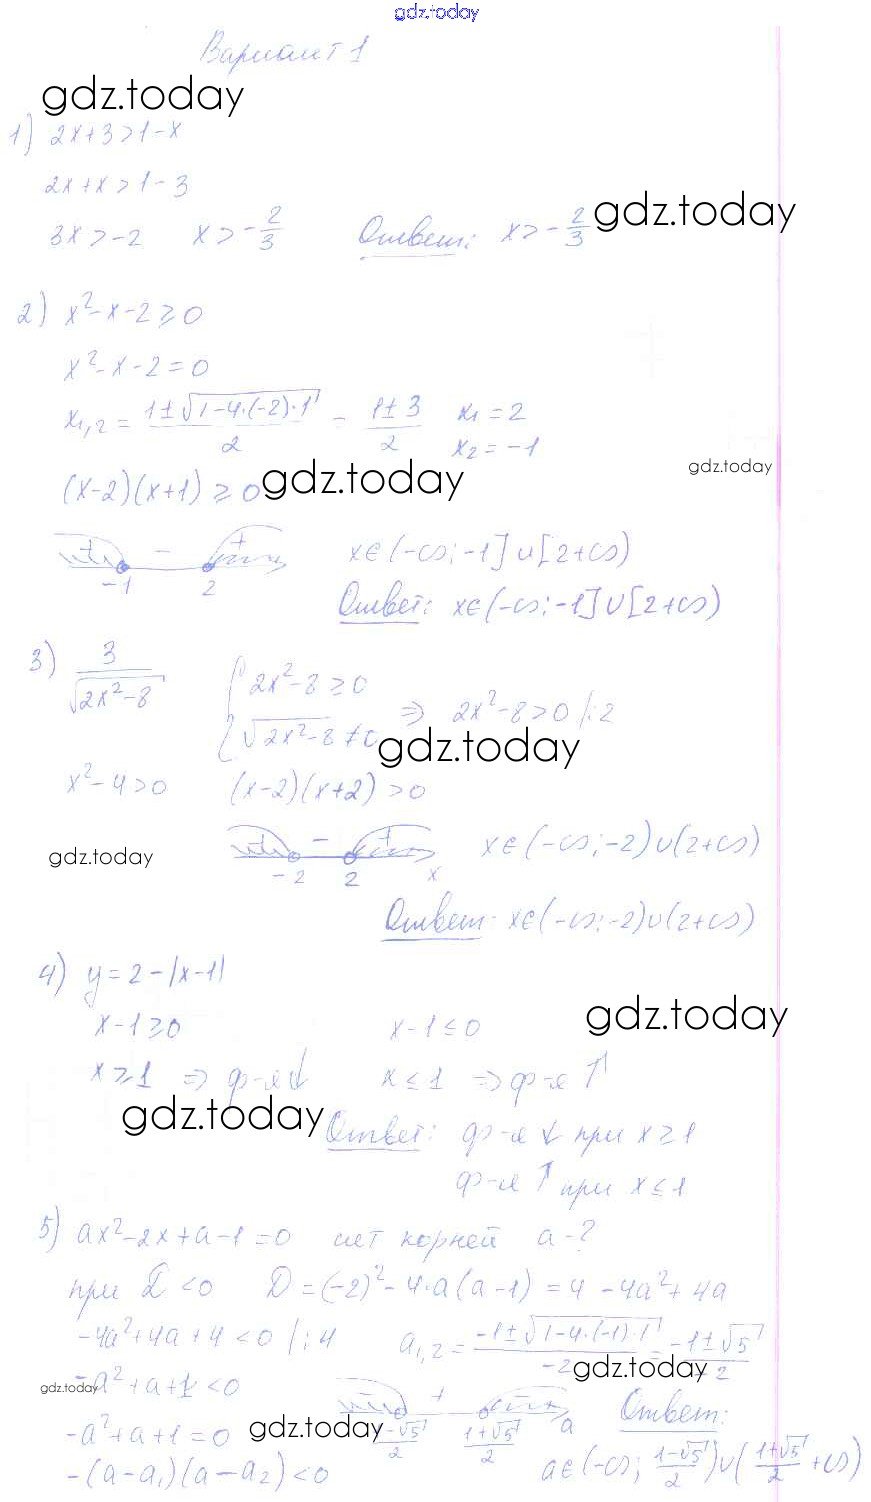 gdz.today
Вариант 1
gdz.today
1) 2x+3>1-x
2x+x>1-3
3x>-2 x>-2/3 Ответ: x>-2/3 gdz.today
2) x²-x-2≥0
x²-x-2=0
x₁,₂ = (1±√(1-4·(-2)·1))/2 = (1±3)/2 x₁=2 x₂=-1
gdz.today
(x-2)(x+1)≥0 gdz.today
+ - + -1 2 x∈(-∞;-1]∪[2+∞)
Ответ: x∈(-∞;-1]∪[2+∞)
3) 3/√(2x²-8) {2x²-8≥0 √(2x²-8)≠0 ⇒ 2x²-8>0 /:2
gdz.today
x²-4>0 (x-2)(x+2)>0
gdz.today
+ - + -2 2 x x∈(-∞;-2)∪(2+∞)
Ответ: x∈(-∞;-2)∪(2+∞)
4) y=2-|x-1|
x-1≥0 x-1≤0 gdz.today
x≥1 ⇒ ф-я↓ x≤1 ⇒ф-я↑
gdz.today
Ответ: ф-я ↓ при x≥1
ф-я ↑ при x≤1
5) ax²-2x+a-1=0 нет корней a-?
при D<0 D=(-2)²-4·a(a-1)=4-4a²+4a
-4a²+4a+4<0 /:4 a₁,₂ = (-1±√(1-4·(-1)·1))/-2 = (-1±√5)/-2
gdz.today
gdz.today
-a²+a+1<0
-a²+a+1=0 gdz.today + (1-√5)/2 (1+√5)/2 a Ответ:
-(a-a₁)(a-a₂)<0 a∈(-∞; (1-√5)/2)∪((1+√5)/2+∞)